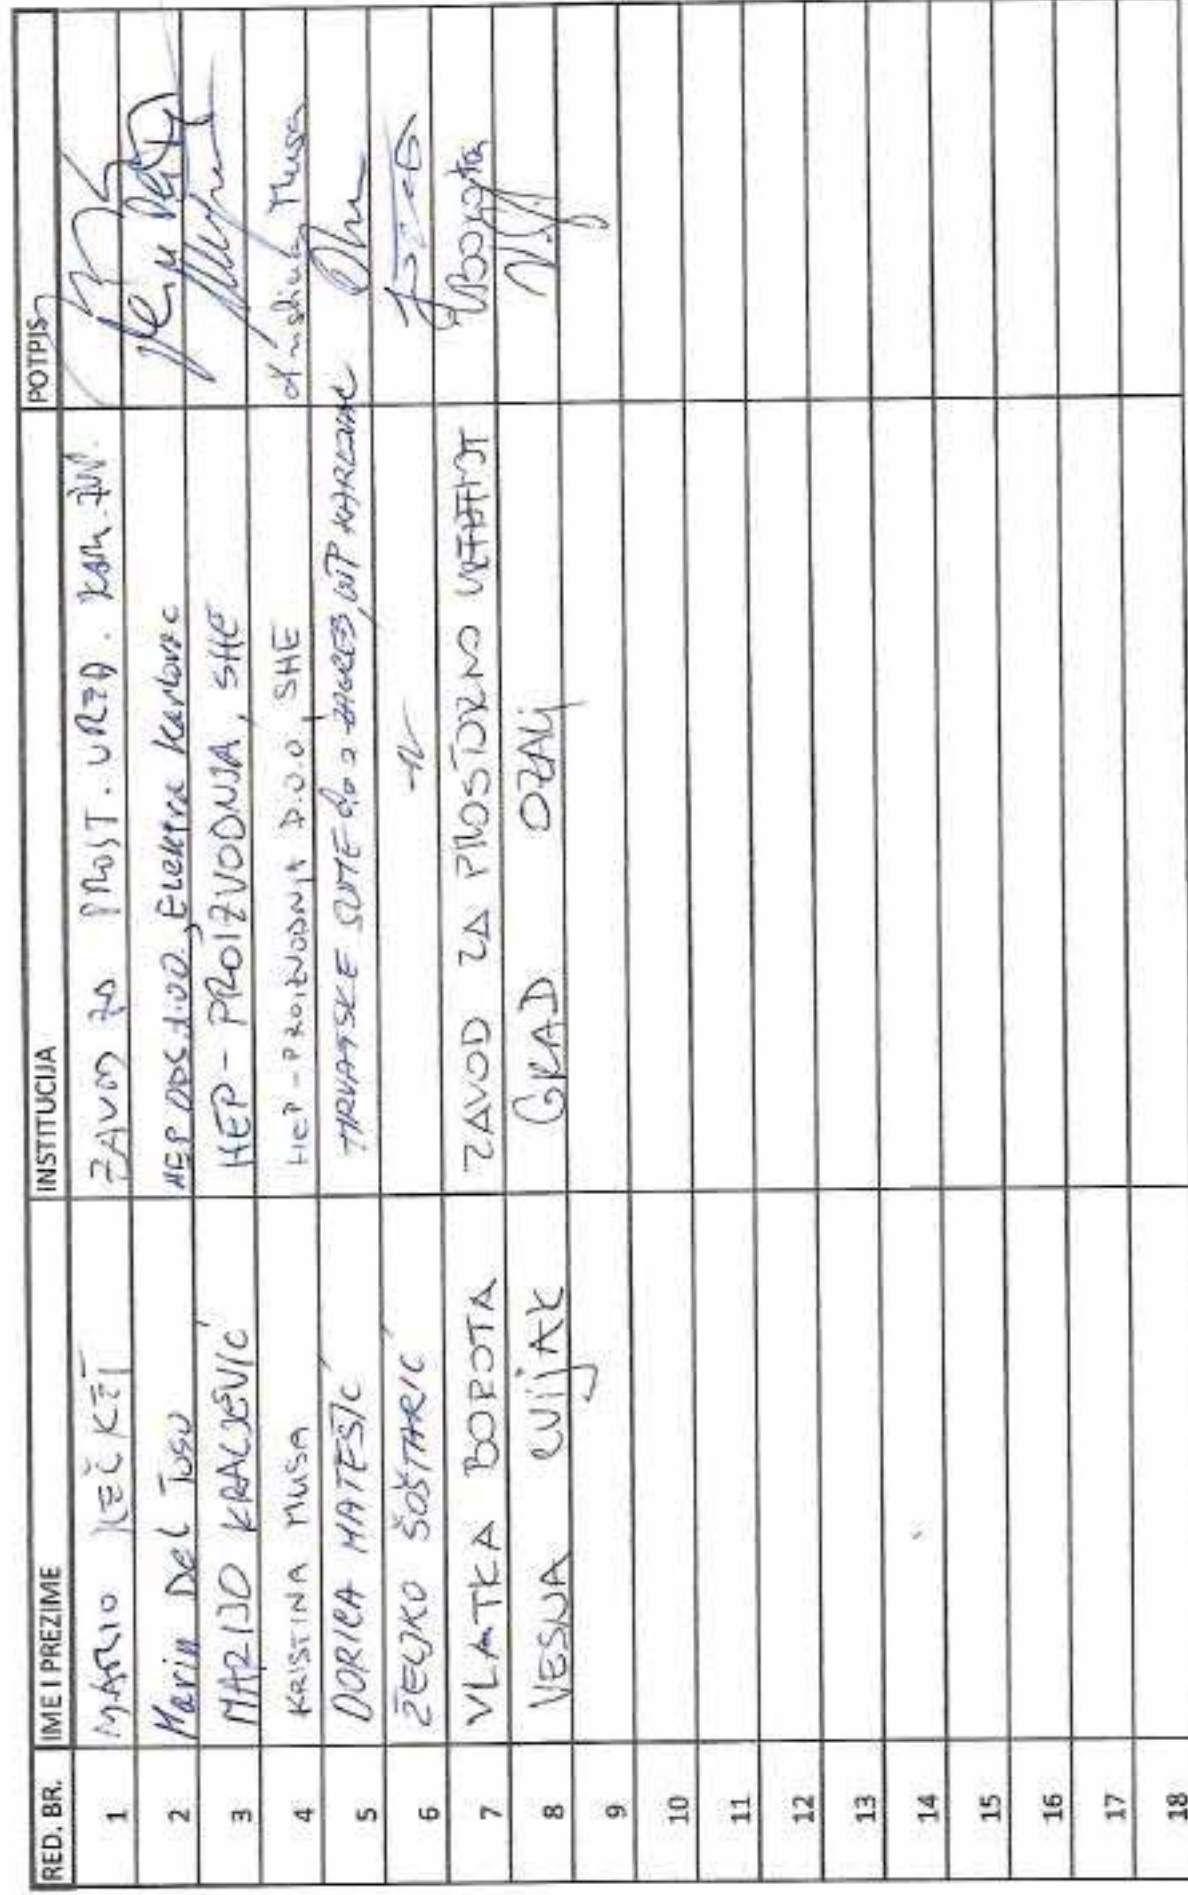 RED. BR. IME I PREZIME INSTITUCIJA POTPIS
1 MARIO KEČKEŠ ZAVOD ZA PROST. UREĐ. KARL. ŽUP.
2 Marin Del Toso HEP ODS d.o.o., Elektra Karlovac
3 MARIJO KRALJEVIĆ HEP - PROIZVODNJA, SHE
4 KRISTINA MUSA HEP - PROIZVODNJA D.O.O, SHE Kristina Musa
5 DORICA MATEŠIĆ HRVATSKE ŠUME d.o.o ZAGREB, UŠP KARLOVAC
6 ŽELJKO ŠOŠTARIĆ -11-
7 VLATKA BOROTA ZAVOD ZA PROSTORNO Borota
8 VESNA CVIJAK GRAD OZALJ
9
10
11
12
13
14
15
16
17
18